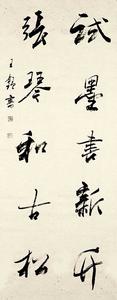 試墨書新竹
張琴和古松
王書